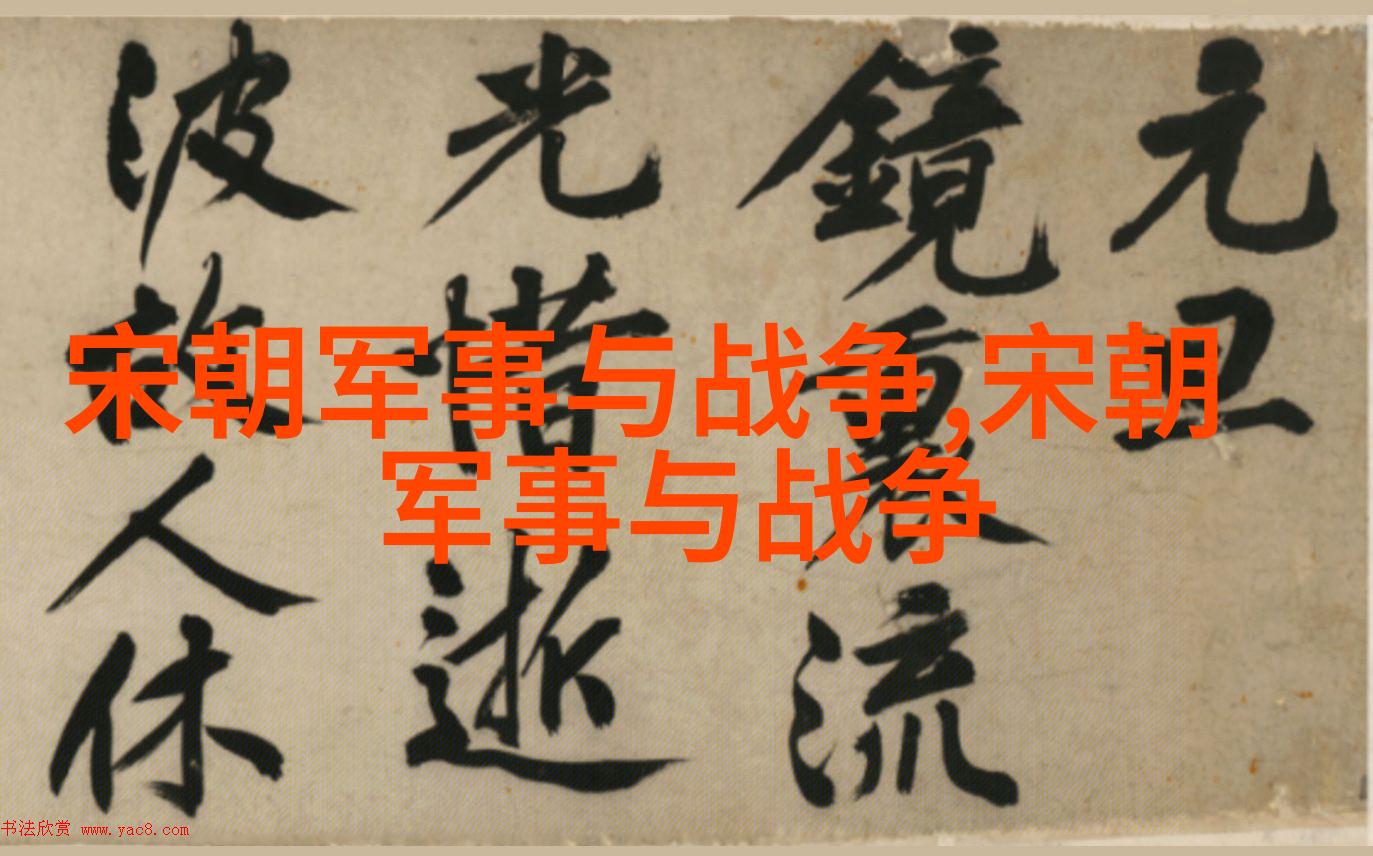 元丑
鏡裏流
光惜逝
波故人休
宋朝军事与战争,宋朝
军事与战争
书法欣赏 www.yac8.com